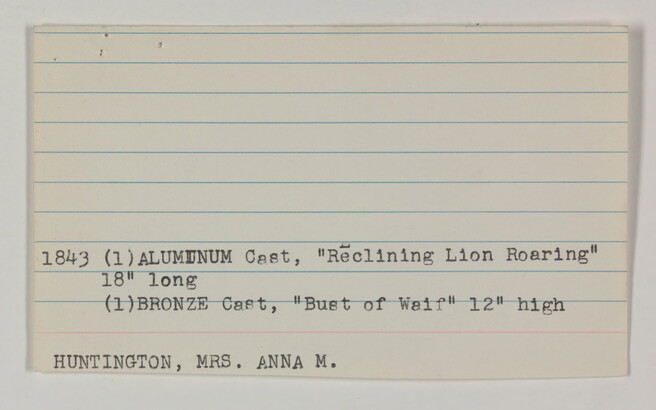 1843 (1)ALUMINUM Cast, "Reclining Lion Roaring"
18" long
(1)BRONZE Cast, "Bust of Waif" 12" high
HUNTINGTON, MRS. ANNA M.